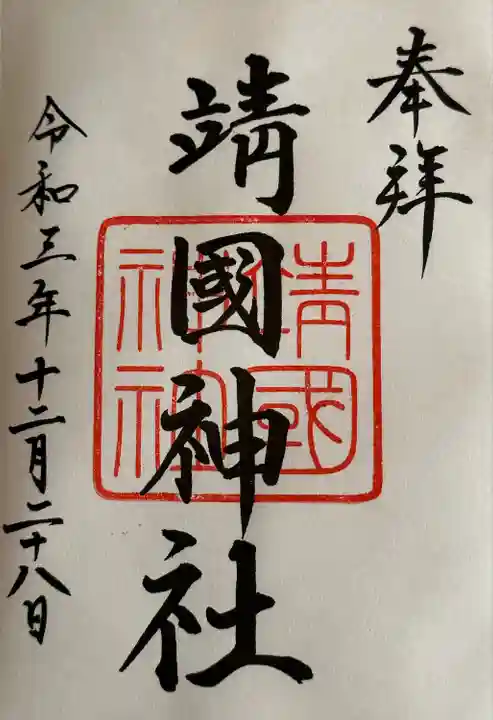 奉拜
靖國神社
靖國神社
令和三年十二月二十八日